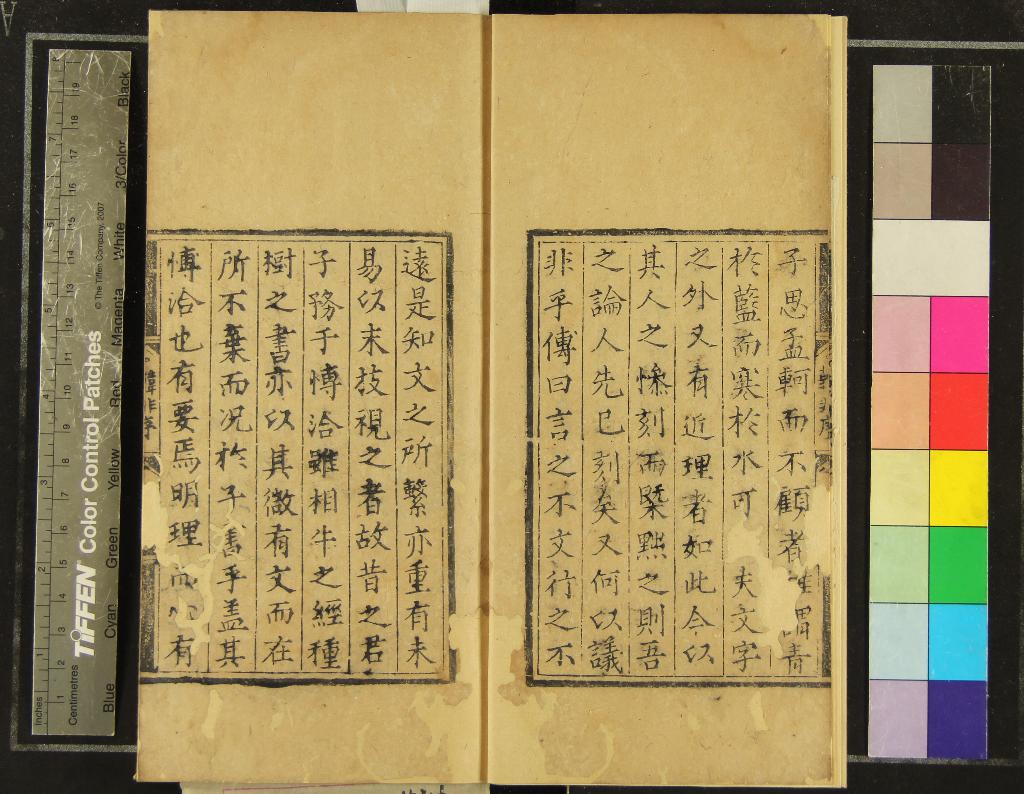 子思孟軻而不顧者 謂青
於藍而寒於水可 夫文字
之外又有近理者如此今以
其人之慘刻而槩黜之則吾
之論人先已刻矣又何以議
非乎傳曰言之不文行之不
遠是知文之所繫亦重有未
易以末技視之者故昔之君
子務于博洽雖相牛之經種
樹之書亦以其微有文而在
所不棄而況於子書乎盖其
博洽也有要焉明理 有
韓非序
Inches
Centimetres
TIFFEN Color Control Patches
© The Tiffen Company, 2007
Blue Cyan Green Yellow Red Magenta White 3/Color Black